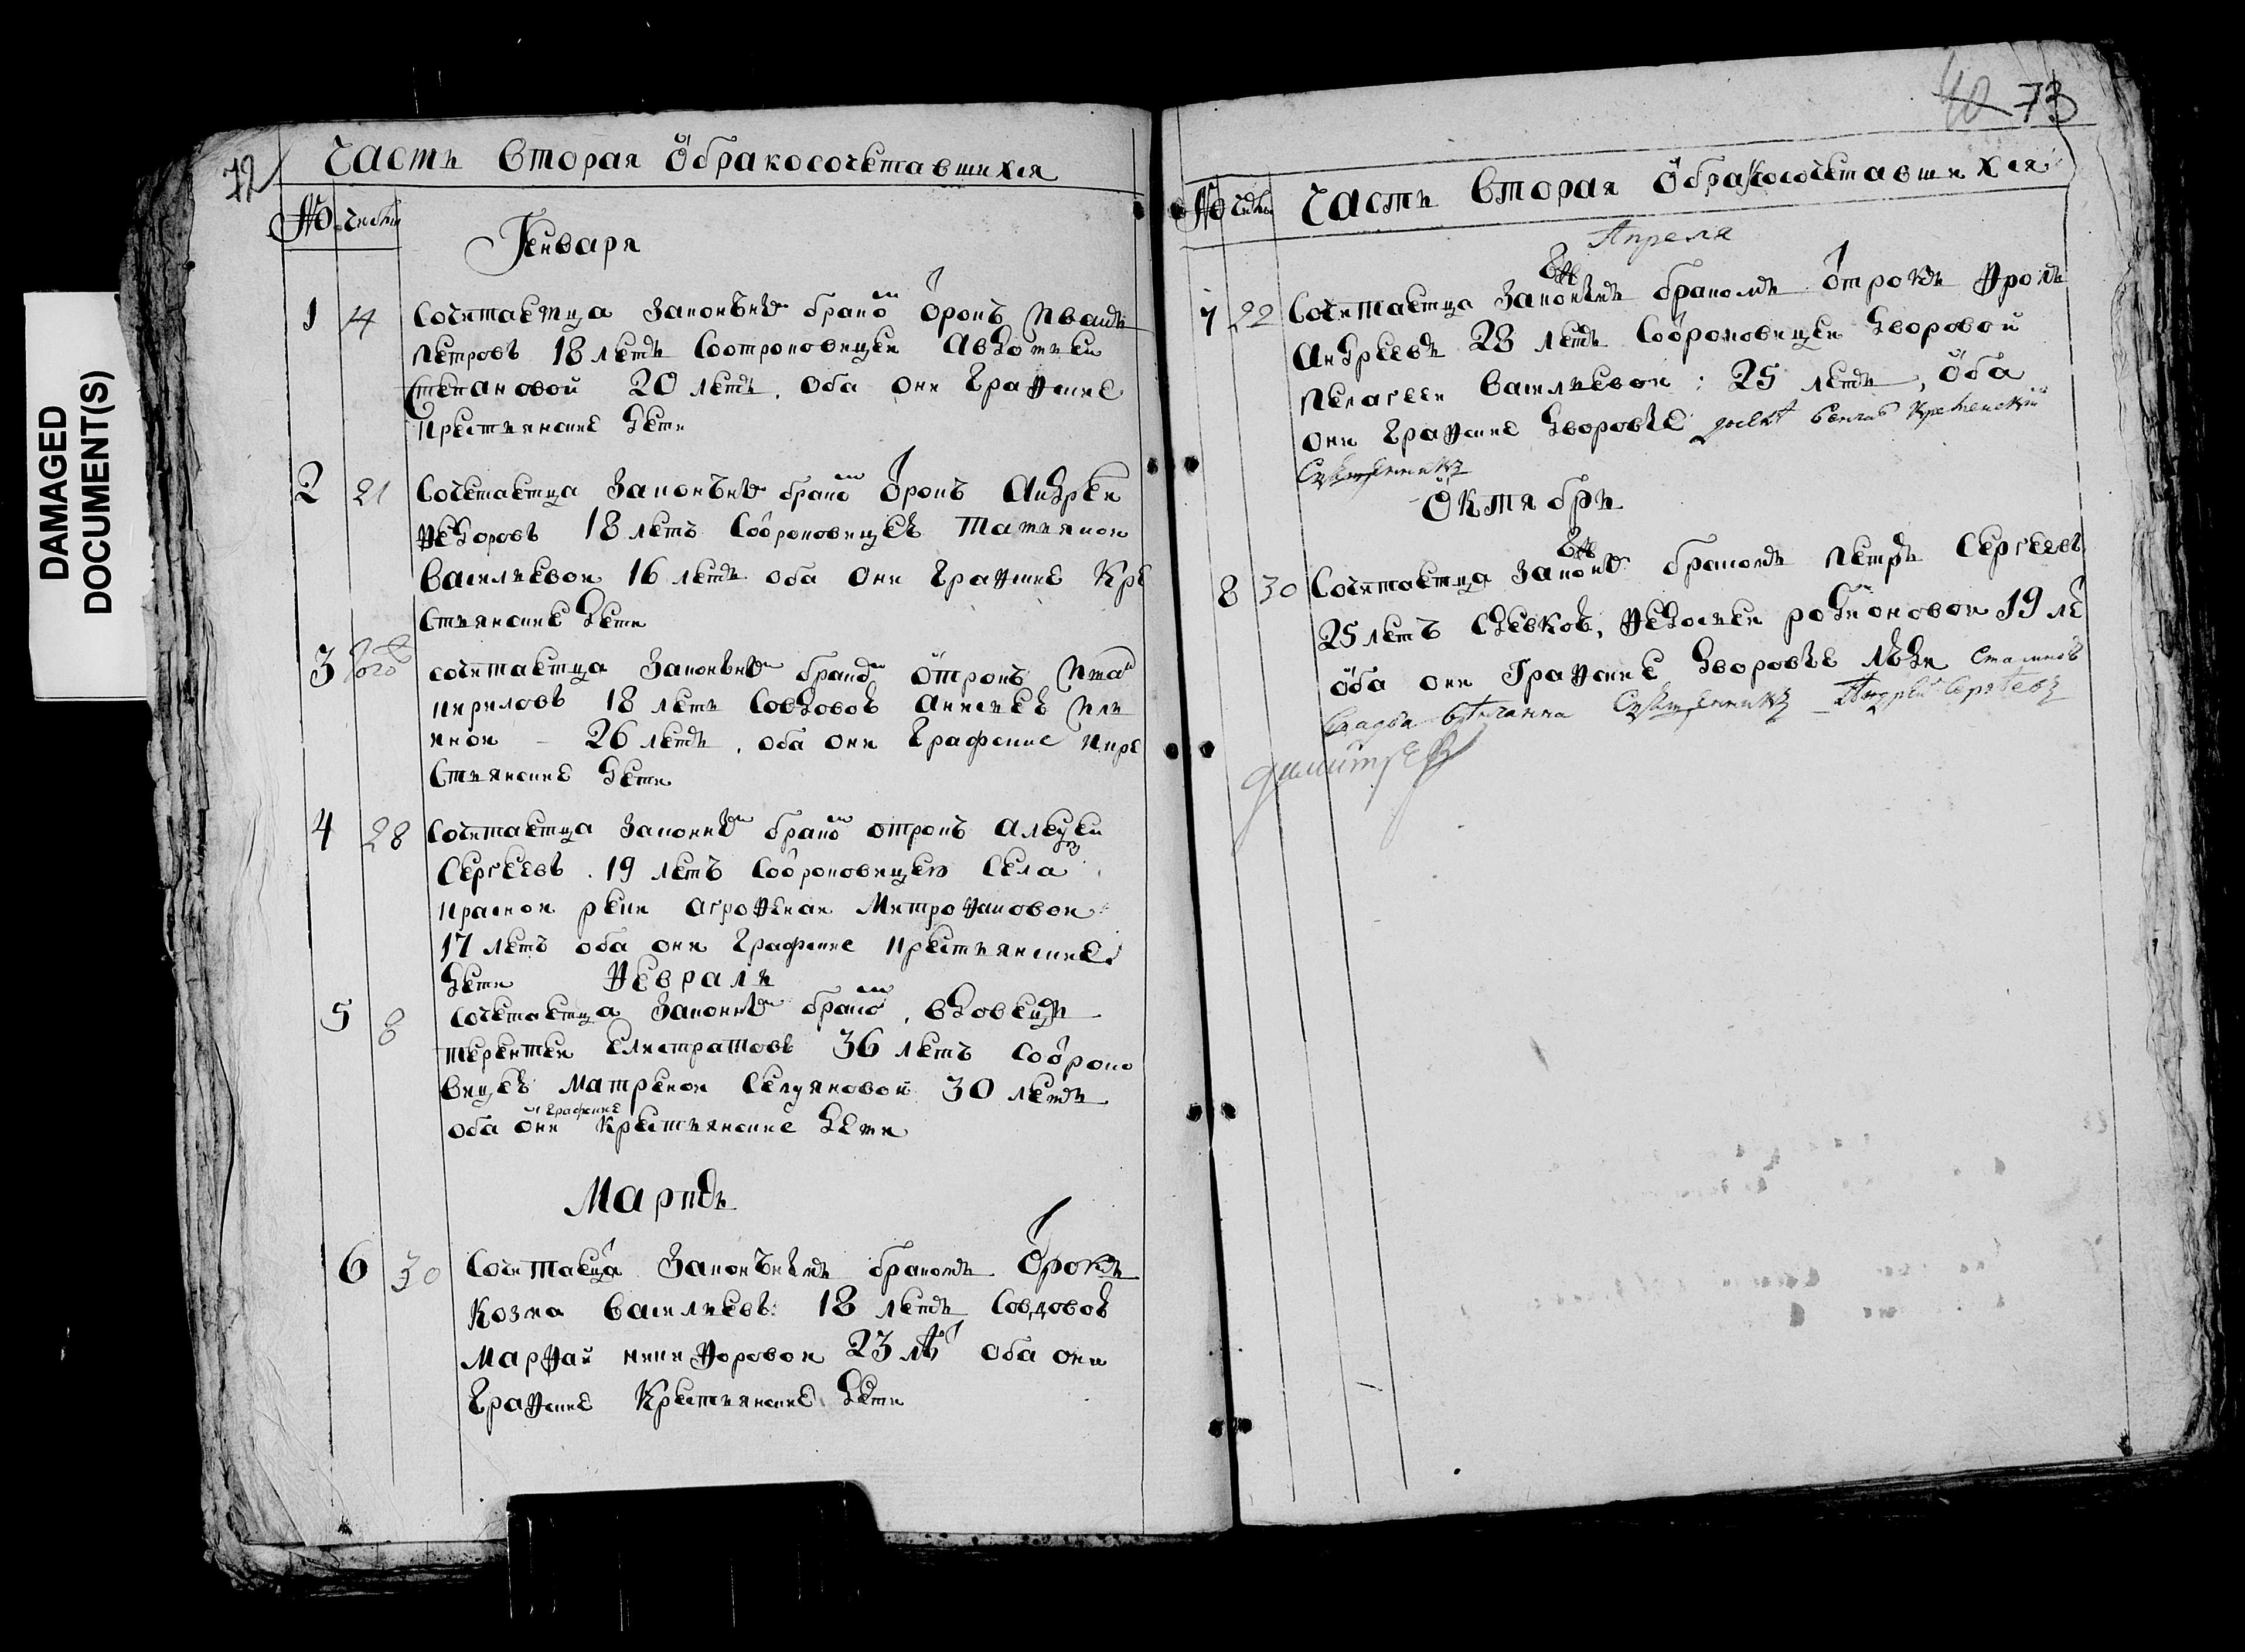 DAMAGED
DOCUMENT(S)
72
Часть вторая о бракосочетавшихся
№ числы
Генваря
1 14 Сочетаетца законънымъ бракомъ отрокъ Иванъ
Петровъ 18 летъ Соотроковицеи Авдотьеи
Степановой 20 летъ, оба они Графские
Крестьянские дети
2 21 Сочетаетца законънымъ бракомъ отрокъ Андреи
Федоровъ 18 летъ Соотроковицеи Татьянои
Васильевои 16 летъ оба они Графские Кре
стьянские дети
3 того сочетаетца законънымъ бракомъ отрокъ
Кириловъ 18 летъ Совдовои
26 летъ, оба они Графские Кре
стьянские дети
4 28 Сочетаетца законнымъ бракомъ отрокъ Алексеи
Сергеевъ 19 летъ Соотроковицею села
Краснои реки Агрофенаи Митрофановои
17 летъ оба они Графские Крестьянские
дети Февраль
5 8 Сочетаетца законнымъ бракомъ, вдовецъ
Терентеи Елистратовъ 36 летъ Соотроко
вицеи Матренои Селуяновой 30 летъ
оба они Графские Крестьянские дети
Мартъ
6 30 Сочетаетца законънымъ бракомъ отрокъ
Козма Васильевъ 18 летъ Совдовои
Марфаи Никифоровои 23 летъ оба они
Графские Крестьянские дети
40 73
№ числы Часть вторая о бракосочетавшихся
Апреля
7 22 Сочетаетца законънымъ бракомъ отрокъ Фролъ
Андреевъ 23 летъ Соотроковицеи дворовои
Пелагееи Васильевои: 25 летъ, оба
они Графские дворовые
Священникъ
Октябрь
8 30 Сочетаетца законнымъ бракомъ Петръ Сергеевъ
25 летъ Федосьеи Родионовои 19 ле
оба они Графские дворовые люди
Свадба венчанна Священникъ Андрей Сергеевъ
Димитрев